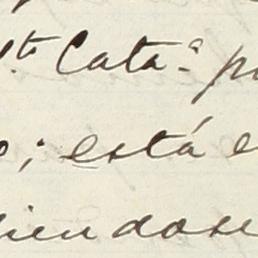 Sta Cata.a
; está e
iendose